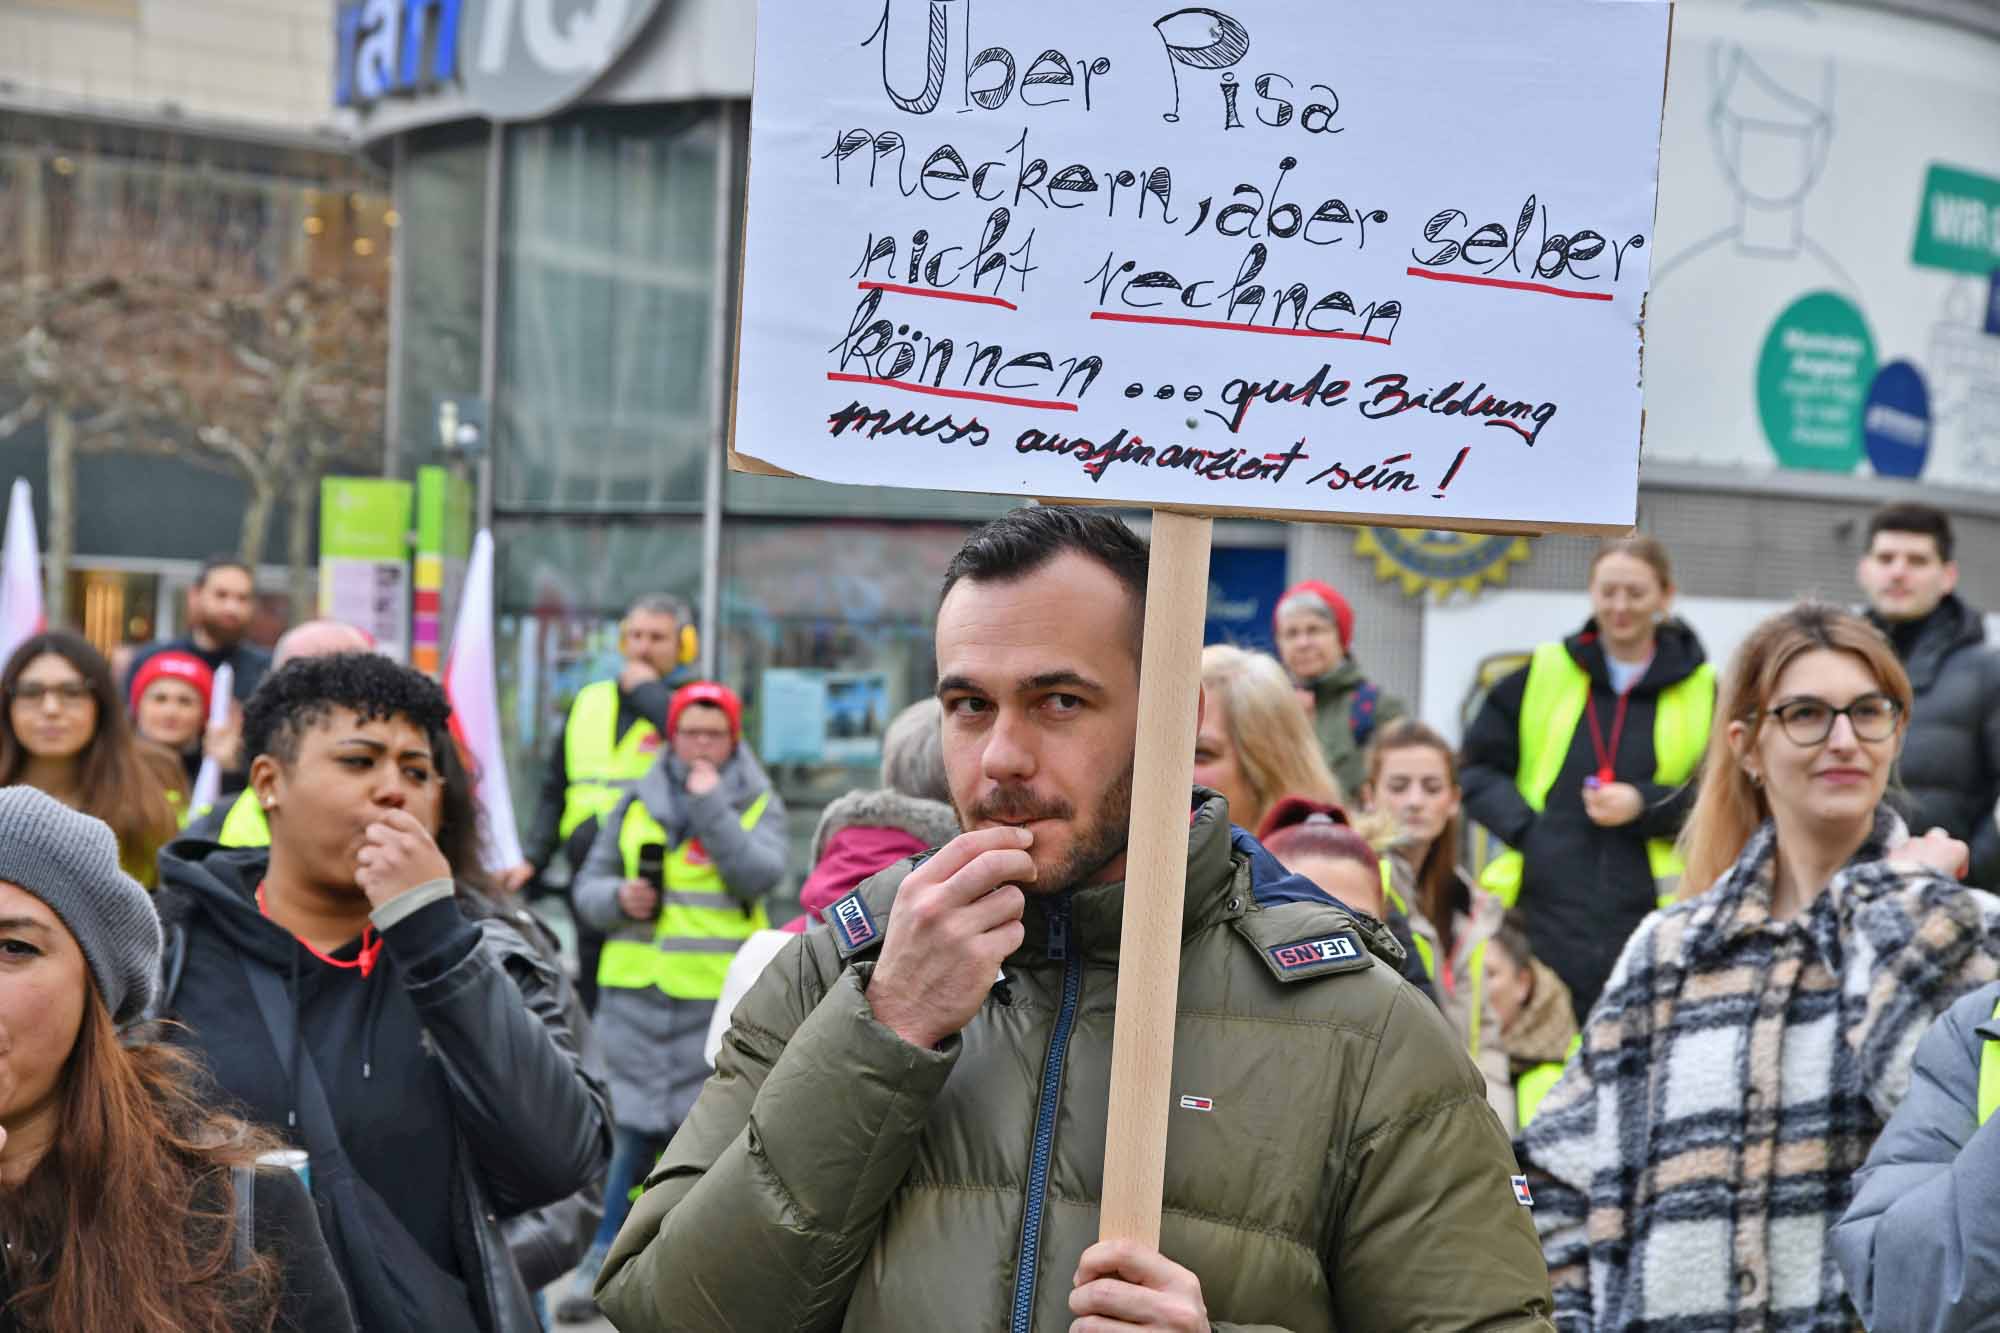 Über Pisa
meckern, aber selber
nicht rechnen
können ... gute Bildung
muss ausfinanziert sein!
TOMMY
JEANS
WIR